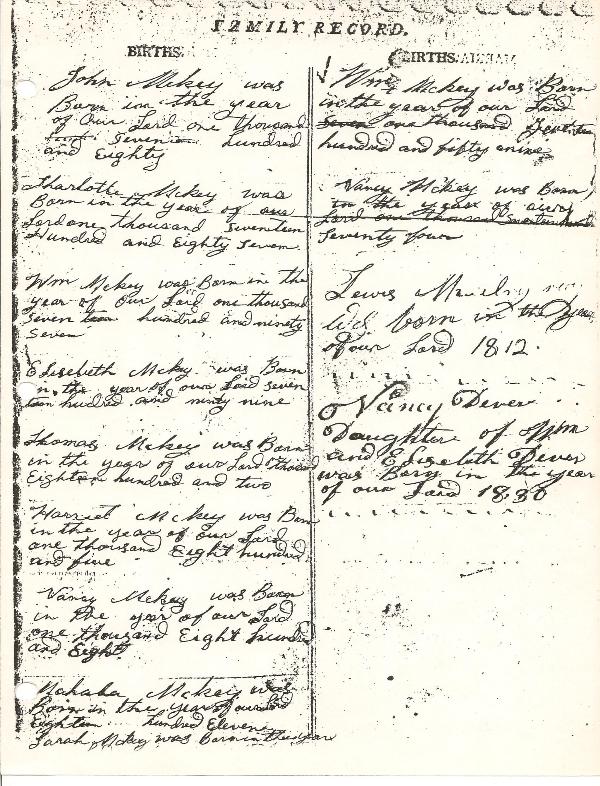 FAMILY RECORD.
BIRTHS.
John Mckey was
Born in the year
of Our Lord one thousand
seven hundred
and Eighty
Charlotte Mckey was
Born in the year of our
Lord one thousand Seventeen
Hundred and Eighty Seven
Wm Mckey was Born in the
year of Our Lord one thousand
seven teen hundred and ninety
Seven
Elisebeth Mckey was Born
in the year of our Lord seven
teen hundred and ninty nine
Thomas Mckey was Born
in the year of our Lord thousand
Eighteen hundred and two
Harriet Mckey was Born
in the year of our Lord
one thousand Eight hundred
and five
Nancy Mckey was Born
in the year of our Lord
one thousand Eight hundred
and Eight
Mahala Mckey was
Born in the year of our Lord
Eighteen hundred Eleven
Sarah Mckey was Born in the year
BIRTHS.
Wm Mckey was Born
in the year of our Lord
Seven one thousand Seventeen
hundred and fifty nine
Nancy Mckey was Born
in the year of our
Lord one thousand Seventeen hund
Seventy four
Lewis
was born in the year
of our Lord 1812.
Nancy Dever
Daughter of Wm
and Elisebeth Dever
was Born in the year
of our Lord 1830